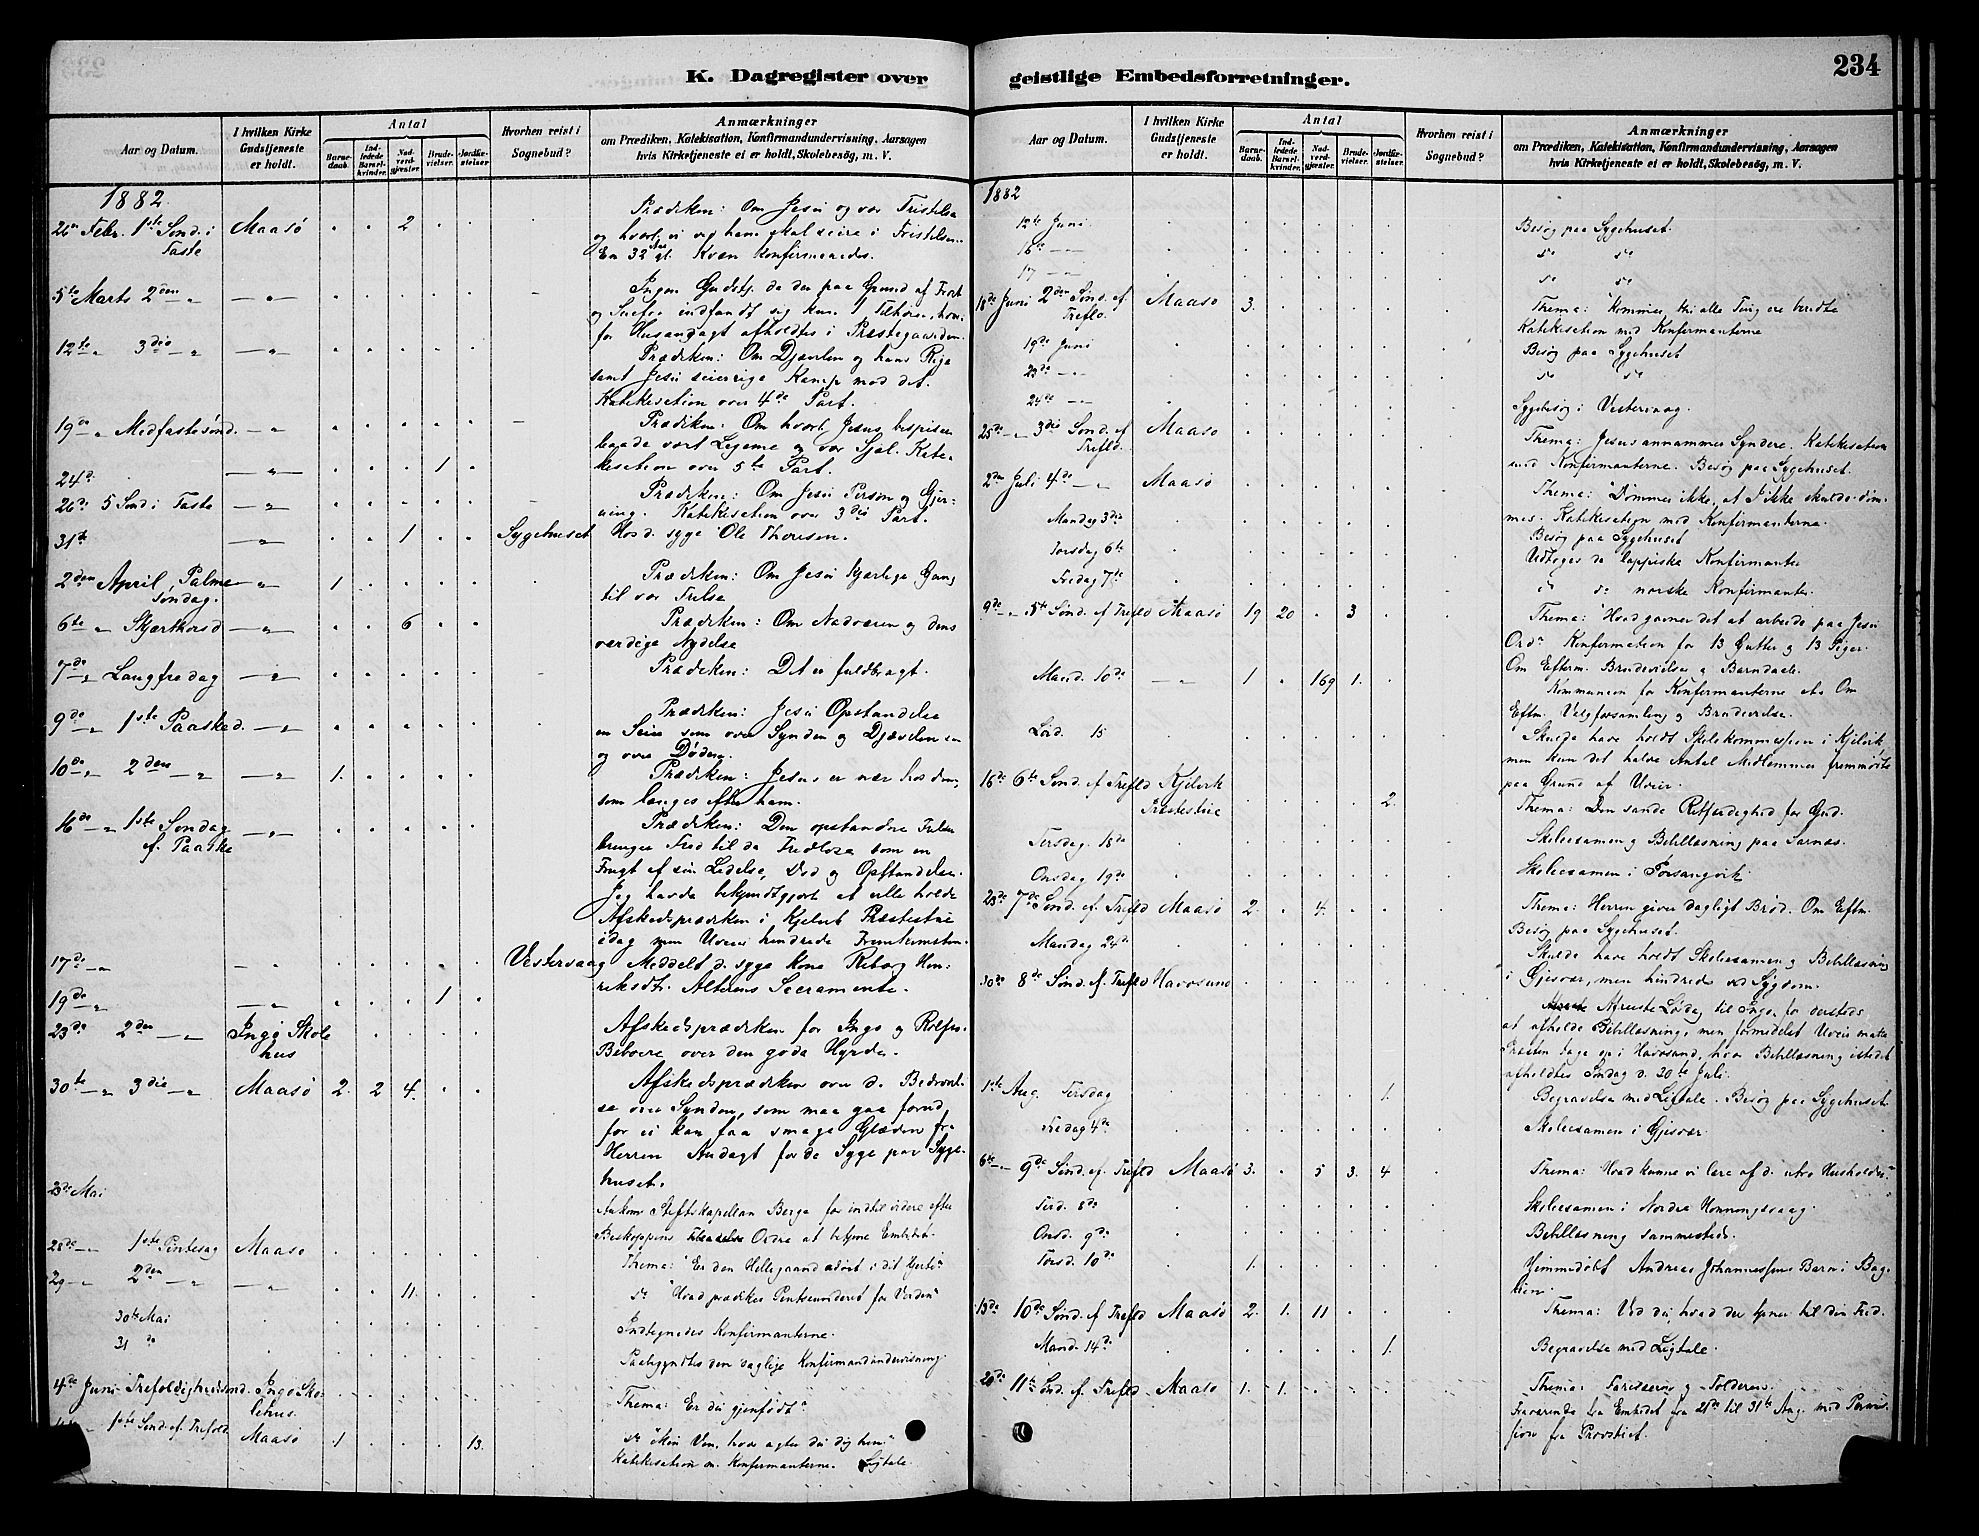 K. Dagregister over
Aar og Datum.
I hvilken Kirke Gudstjeneste er holdt.
Antal
Barnedaab.
Indledede Barselkvinder.
Nadverdgjester.
Brudevielser.
Jordfæstelser.
Hvorhen reist i Sognebud?
Anmærkninger
om Prædiken, Katekisation, Konfirmandundervisning, Aarsagen
hvis Kirketjeneste ei er holdt, Skolebesøg, m. V.
1882
26de Febr. 1ste Sønd. i Faste Maasø 2 Prædiken: Om Jesu og vor Fristelse
og hvorl. vi ved ham skal seire i Fristelsen.
En 32 Aar gl. Kvæn Konfirmeredes.
5te Marts 2den " — " — Ingen Gudstj. da der paa Grund af Frost
og Snefog indfandt sig kun 1 Tilhører, hvor-
for Husandagt afholdtes i Præstegaarden.
12te " 3die " — " — Prædiken: Om Djævelen og hans Rige
samt Jesu seierrige Kamp mod det.
Katekisation over 4de Part.
19de " Midfastesønd. — " — Prædiken: Om hvorl. Jesus bespiser
baade vort Legeme og vor Sjæl. Kate-
kisation over 5te Part.
24de — " — 1
26de 5 Sønd i Faste — " — Prædiken: Om Jesu Person og Gjer-
ning. Katekisation over 3die Part.
31te — " — 1 Sygehuset Hos d. syge Ole Thoresen.
2den April Palmesøndag. — " — 1 Prædiken: Om Jesu kjærlige Gang
til vor Frelse
6te " Skjærthorsd — " — 6 Prædiken: Om Nadveren og dens
værdige Nydelse
7de " Langfredag — " — Prædiken: Det er fuldbragt.
9de " 1ste Paasked. — " — Prædiken: Jesu Opstandelse
en Seier som over Synden og Djævelen saa
og over Døden.
10de " 2den " — " — 1. Prædiken: Jesus er nær hos dem,
som længes efter ham.
16de " 1ste Søndag ef. Paaske — " — Prædiken: Den opstandne Frelser
bringer Fred til de Fredløse som en
Frugt af sin Lidelse, Død og Opstandelse.
Jeg havde bekjendtgjort at ville holde
Afskedsprædiken i Kjelvik Præstestue
idag men Uveir hindrede Fremkomsten.
17de — " — Vestervaag Meddelt d. syge Kone Reborg Hen-
riksdt. Alterens Sacramente.
19de — " — 1
23de 2den — " — Ingø Skolehus Afskedsprædiken for Ingø og Rolfsø-
Beboere over den gode Hyrde.
30te — " 3die — " Maasø 2. 2 4. Afskedsprædiken over d. Bedrøvel-
se over Synden, som maa gaa forud
før vi kan faa smage Glæden fra
Herren Andagt for de Syge paa Syge-
huset.
23de Mai Ankom Stiftskapellan Berge for indtil videre efter
Biskoppens Ordre at betjene Embedet.
28de — " 1ste Pintsedag Maasø Thema: "Er den Helligaand udøst i dit Hjerte"
29 — " 2den — " — " — 11. do "Hvad prædiker Pintseunderet for Verden"
30te Mai Indtegnedes Konfirmanterne.
31 do Paabegyndtes den daglige Konfirmandundervisning.
4de Juni Trefoldighedssønd. Ingø Skolehus. Thema: "Er du gjenfødt"
1ste Sønd. ef. Trefold. Maasø 1 13. do "Min Ven, hvor agter du dig hen."
Katekisation m. Konfirmanterne. Ligtale.
geistlige Embedsforretninger.
234
Aar og Datum.
I hvilken Kirke Gudstjeneste er holdt.
Antal
Barnedaab.
Indledede Barselkvinder.
Nadverdgjester.
Brudevielser.
Jordfæstelser.
Hvorhen reist i Sognebud?
Anmærkninger
om Prædiken, Katekisation, Konfirmandundervisning, Aarsagen
hvis Kirketjeneste ei er holdt, Skolebesøg, m. V.
1882
12te Juni Besøg paa Sygehuset.
16de — " — do do
17 — " — do do
18de Juni 2den Sønd. ef. Trefld. Maasø 3. Thema: "Kommer, thi alle Ting ere beredte
Katekisation med Konfirmanterne
19de Juni Besøg paa Sygehuset
23de — " — do do
24de — " — Sygebesøg i Vestervaag.
25de — " 3die Sønd. ef Trefld. Maasø Thema: Jesus annammer Syndere. Katekisation
med Konfirmanterne. Besøg paa Sygehuset.
2den Juli 4de — " — Maasø Thema: "Dømmer ikke, at I ikke skulle døm-
mes. Katekisation med Konfirmanterne.
Mandag 3die Besøg paa Sygehuset
Torsdag 6te Udtoges de lappiske Konfirmanter
Fredag 7de do norske Konfirmanter.
9de — " 5te Sønd. ef Trefld Maasø 19 20 3 Thema: "Hvad gavner det at arbeide paa Jesu
Ord" Konfirmation for 13 Gutter og 13 Piger.
Om Efterm. Brudevielse og Barndaab.
Mand. 10de — " — 1 169 1. Kommunion for Konfirmanterne etc Om
Eftm. Valgforsamling og Brudevielse.
Lørd. 15 Skulde have holdt Skolekommission i Kjelvik,
men kun det halve Antal Medlemmer fremmødte
paa Grund af Uveir.
16de 6te Sønd. ef Trefld Kjelvik Præstestue 2. Thema: Den sande Retfærdighed for Gud.
Tirsdag 18de Skoleexamen og Bibellæsning paa Sarnæs.
Onsdag 19de Skoleexamen i Porsangvik
23de 7de Sønd. ef. Trefld Maasø 2. 4. Thema: Herren giver dagligt Brød. Om Eftm.
Besøg paa Sygehuset.
Mandag 24de Skulde have holdt Skoleexamen og Bibellæsning
i Gjesvær, men hindredes ved Sygdom.
30de 8de Sønd. ef. Trefld Havøsund Afreiste Lørdag til Ingø, for dersteds
at afholde Bibellæsning, men formedelst Uveir maatte
Præsten tage op i Havøsund, hvor Bibellæsning istedet
afholdtes Søndag d. 30te Juli.
1ste Aug. Tirsdag 1. Begravelse med Ligtale. Besøg paa Sygehuset
Fredag 4de Skoleexamen i Gjesvær.
6te — " 9de Sønd. ef. Trefld Maasø 3. 5 3. 4 Thema: Hvad kunne vi lære af d. utro Husholder"
Tirsd. 8de Skoleexamen i Nordre Honningsvaag.
Onsd. 9de Bibellæsning sammesteds.
Torsd. 10de 1. Hjemmedøbt Andreas Johannessens Barn i
13de 10de Sønd. ef Trefld Maasø 2. 1. 11 Thema: Ved du, hvad der tjener til din Fred.
Mand. 14de 1. Begravelse med Ligtale.
20de 11te Sønd. ef. Trefld Maasø 1. 1. Thema: Farisæeren og Tolderen.
Fraværende fra Embedet fra 21de til 31te Aug. med Permis-
sion fra Provstiet.